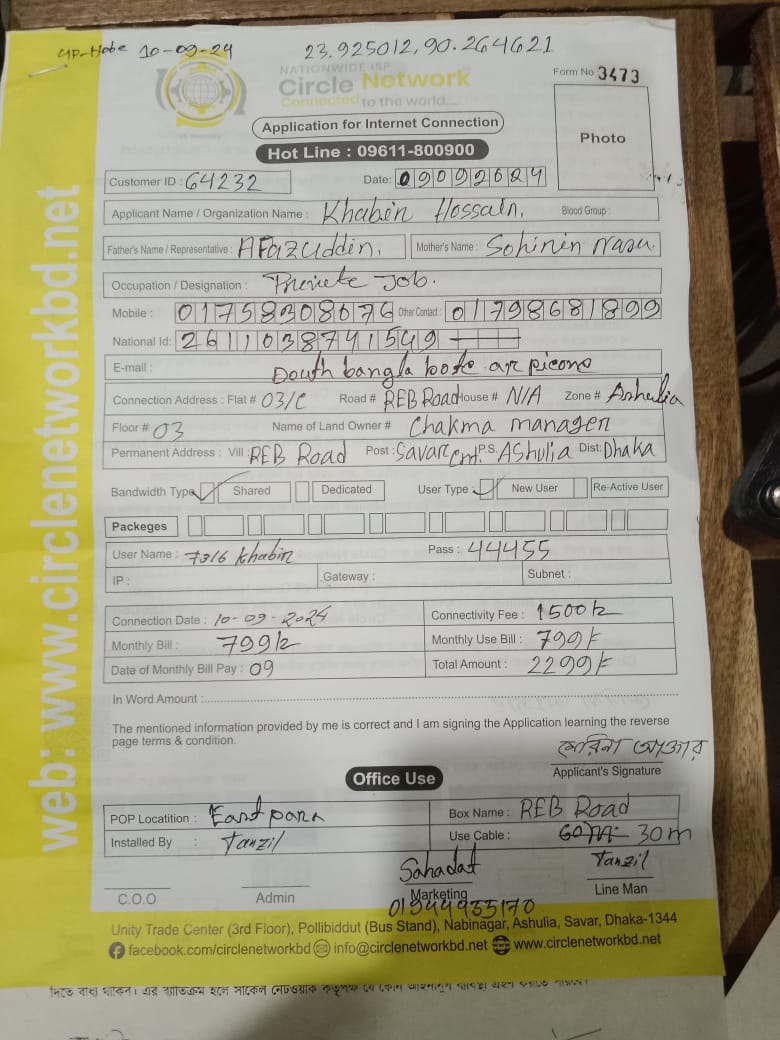 UP-Hobe 10-09-24 23.925012,90.264621
NATIONWIDE ISP
Circle Network
Connected to the world....
Form No 3473
Photo
Application for Internet Connection
Hot Line : 09611-800900
Customer ID : 64232 Date: 09092024
Applicant Name / Organization Name : Khabin Hossain. Blood Group :
Father's Name / Representative : AFazuddin. Mother's Name : Sohinin
Occupation / Designation : Private Job.
Mobile : 01758308676 Other Contact : 01798681899
National Id: 2611038741549
E-mail : South bangla
Connection Address : Flat # 03/C Road # REB Road House # N/A Zone # Ashulia
Floor # 03 Name of Land Owner # Chakma manager
Permanent Address : Vill : REB Road Post : Savar Cnt. P.S. Ashulia Dist: Dhaka
Bandwidth Type Shared Dedicated User Type : New User Re-Active User
Packeges
User Name : 7316 Khabin Pass : 44455
IP : Gateway : Subnet :
Connection Date : 10-09-2024 Connectivity Fee : 1500k
Monthly Bill : 799k Monthly Use Bill : 799k
Date of Monthly Bill Pay : 09 Total Amount : 2299k
In Word Amount :
The mentioned information provided by me is correct and I am signing the Application learning the reverse
page terms & condition.
আক্তার
Applicant's Signature
Office Use
POP Locatition : Eastpara Box Name : REB Road
Installed By : Tanzil Use Cable : 30m
Sahadat Tanzil
C.O.O Admin Marketing Line Man
01944935170
Unity Trade Center (3rd Floor), Pollibiddut (Bus Stand), Nabinagar, Ashulia, Savar, Dhaka-1344
facebook.com/circlenetworkbd info@circlenetworkbd.net www.circlenetworkbd.net
web: www.circlenetworkbd.net